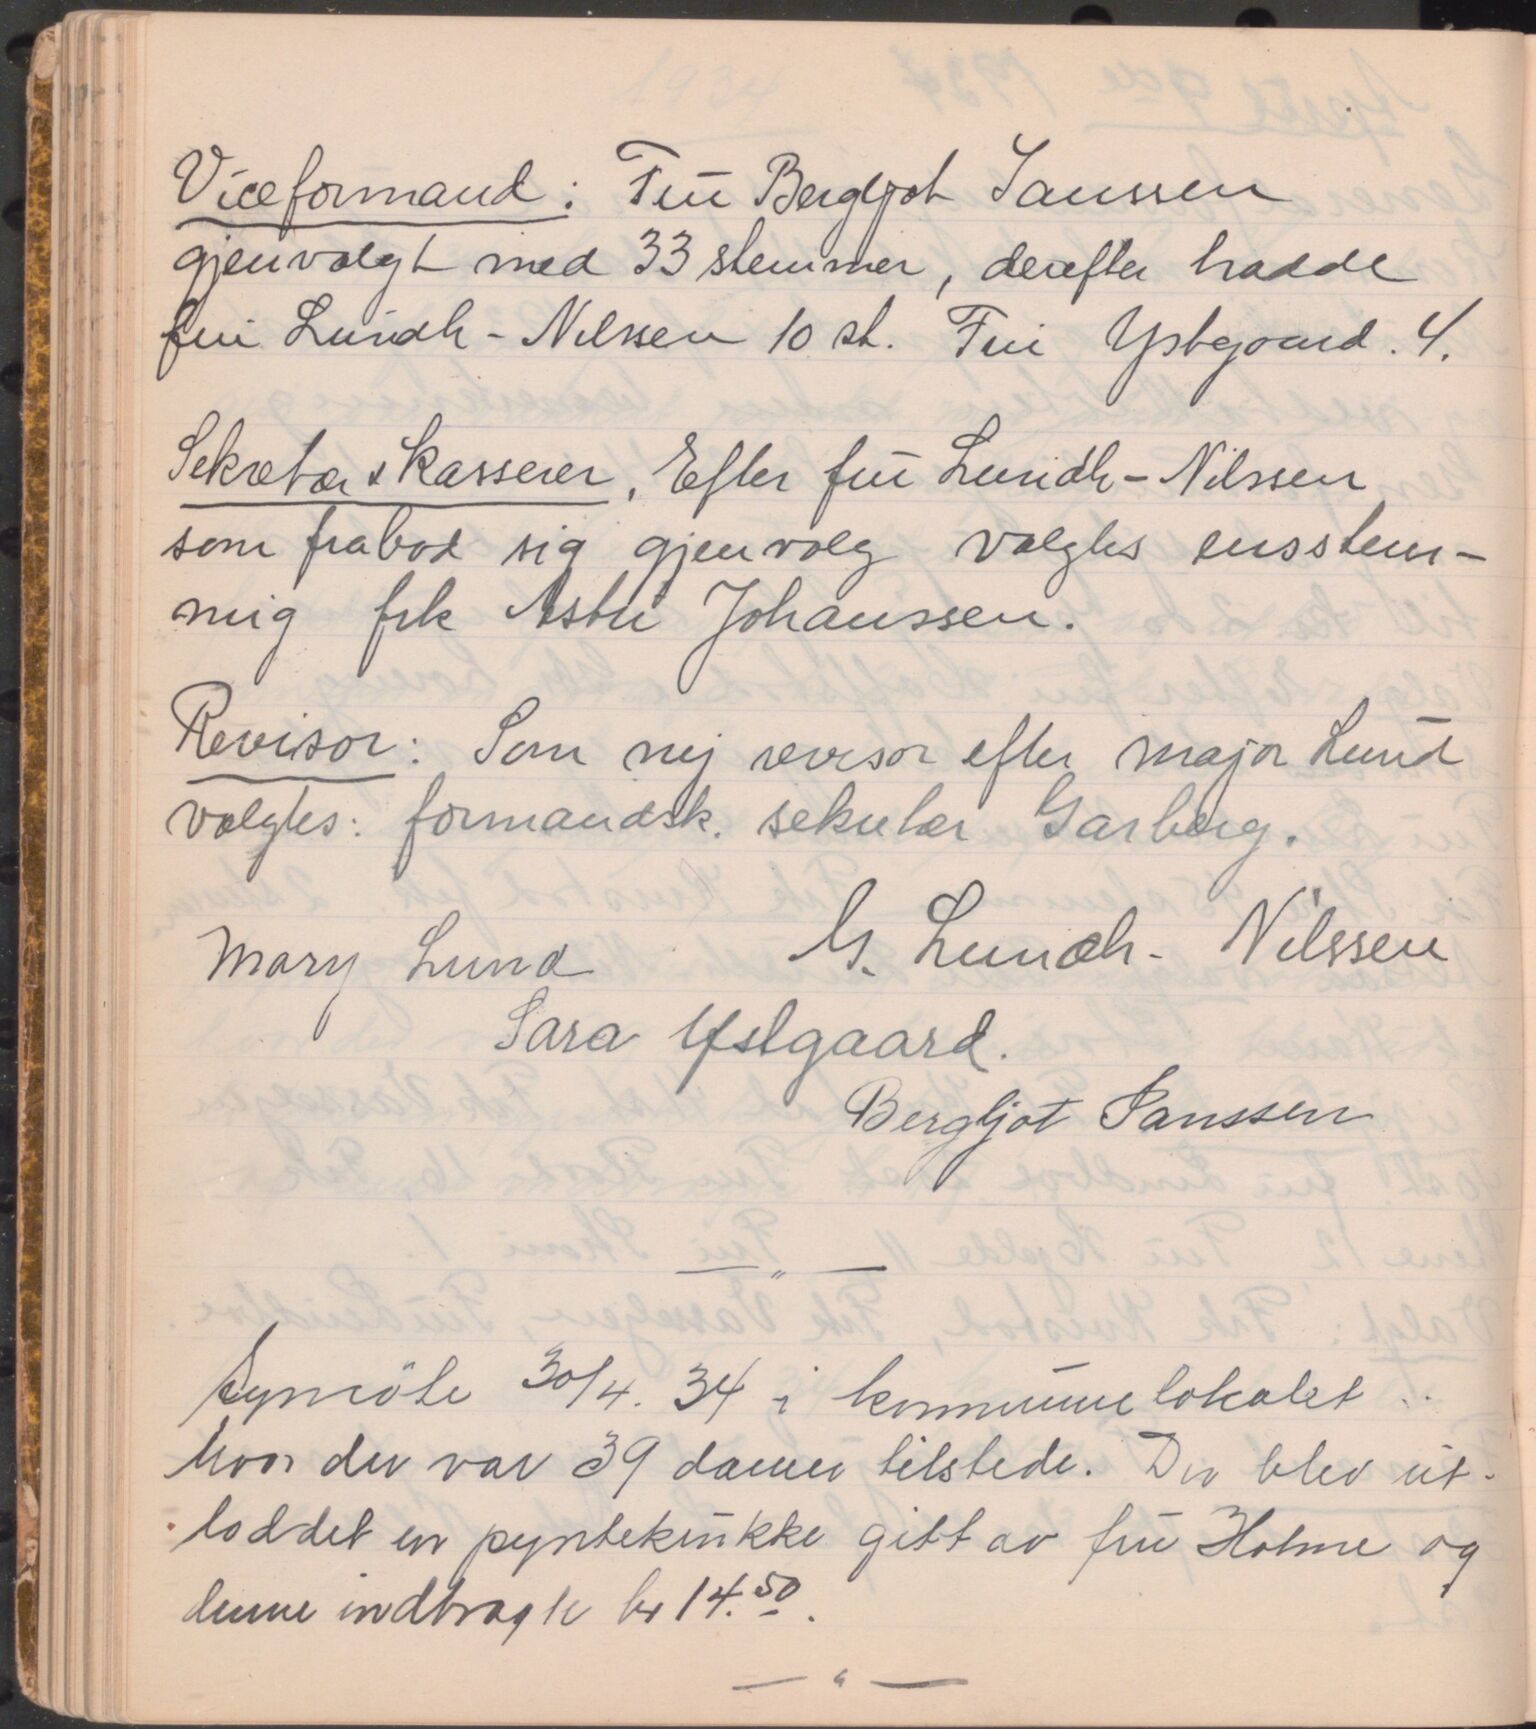 Viceformand: Fru Bergljot Janssen
gjenvalgt med 33 stemmer, derefter hadde
fru Lundh-Nilssen 10 st. Fru Ystgaard. 4.
Sekretær & kasserer. Efter fru Lundh-Nilssen
som frabad sig gjenvalg valgtes enstem-
mig frk Astri Johanssen.
Revisor: Som ny revisor efter major Lund
valgtes: formandsk. sekretær Garberg.
Mary Lund G. Lundh-Nilssen
Sara Ystgaard.
Bergljot Janssen
— " —
Symöte 30/4. 34 i kommunelokalet
hvor der var 39 damer tilstede. Der blev ut-
loddet en pyntekrukke gitt av fru Holme og
denne indbragte kr 14.50.
— " —